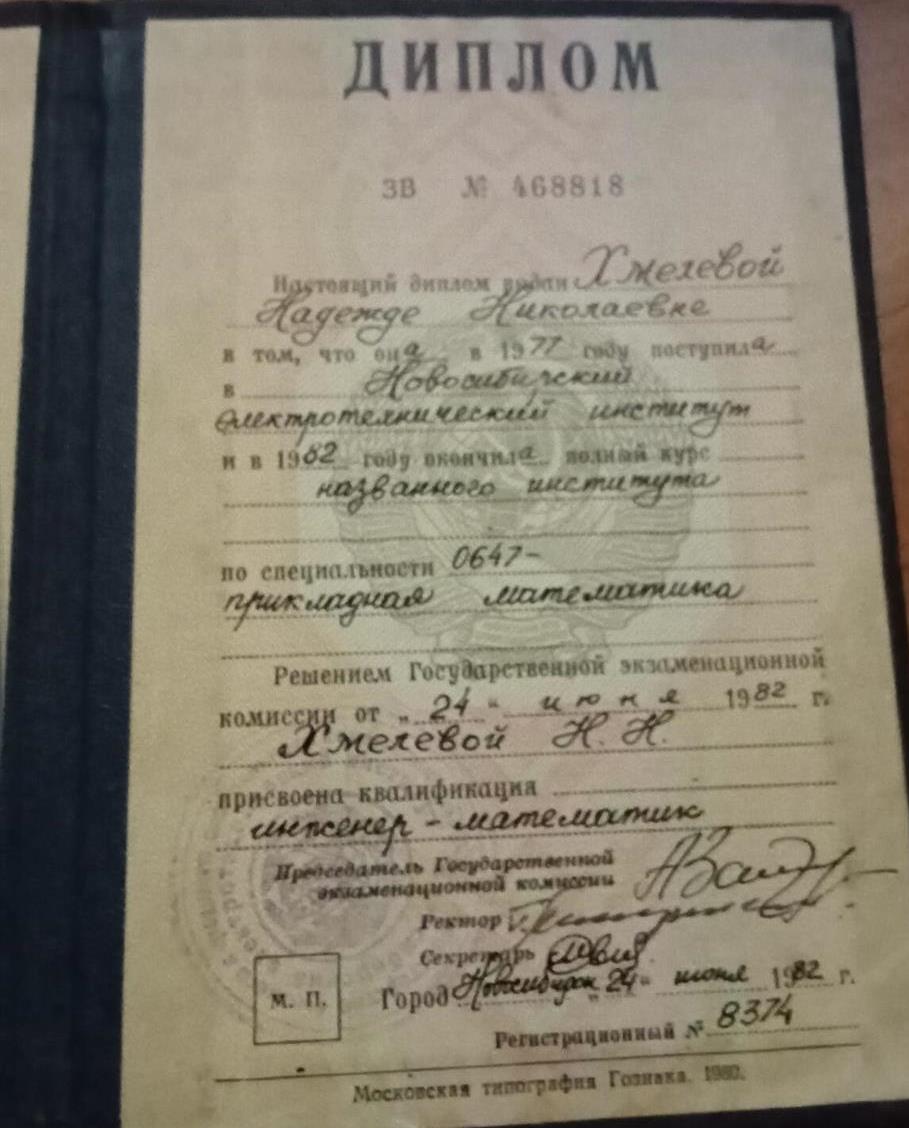 ДИПЛОМ
ЗВ № 468818
Настоящий диплом выдан Хмелевой
Надежде Николаевне
в том, что она в 1977 году поступила
в Новосибирский
электротехнический институт
и в 1982 году окончила полный курс
названного института
по специальности 0647-
прикладная математика
Решением Государственной экзаменационной
комиссии от „24“ июня 1982 г.
Хмелевой Н. Н.
присвоена квалификация
инженер-математик
Председатель Государственной
экзаменационной комиссии
Ректор
Секретарь
М. П.
Город Новосибирск „24“ июня 1982 г.
Регистрационный № 8374
Московская типография Гознака. 1980.